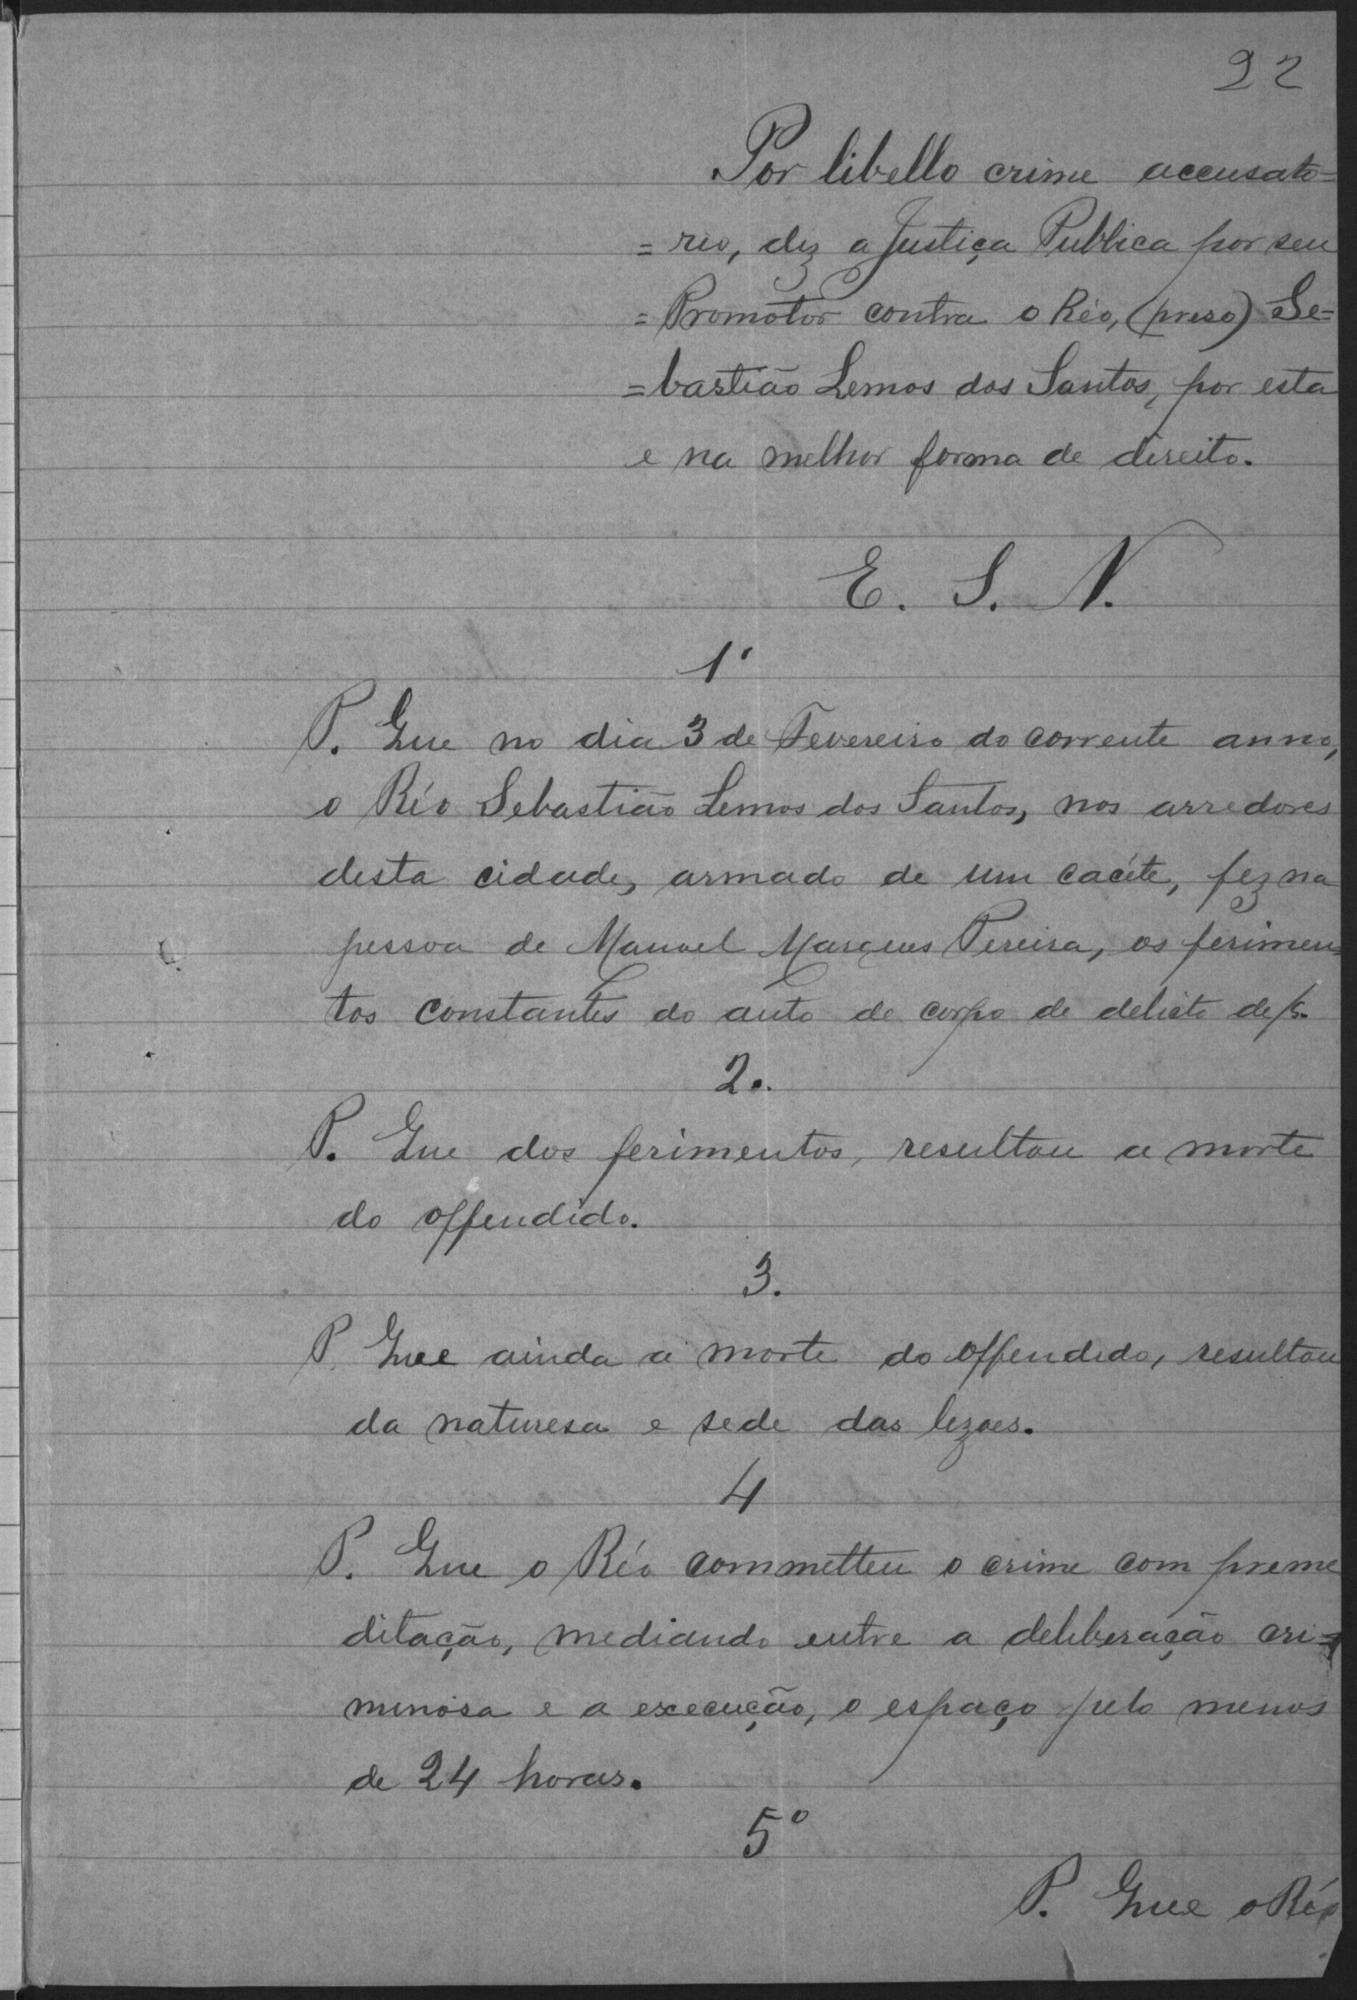 22
Por libello crime accusato=
=rio, diz a Justiça Publica por seu
=Promotor contra o Réo, (preso) Se=
=bastião Lemos dos Santos, por esta
e na melhor forma de direito.
E. S. N.
1º
P. Que no dia 3 de Fevereiro do corrente anno,
o Réo Sebastião Lemos dos Santos, nos arredores
desta cidade, armado de um cacête, fez na
pessoa de Manoel Marques Pereira, os ferimen=
tos constantes do auto de corpo de delicto de fs.
2.
P. Que dos ferimentos, resultou a morte
do offendido.
3.
P. Que ainda a morte do offendido, resultou
da naturesa e sede das lezoes.
4
P. Que o Réo commetteu o crime com preme
ditação, mediando entre a deliberação cri=
minosa e a execução, o espaço pelo menos
de 24 horas.
5º
P. Que o Réo